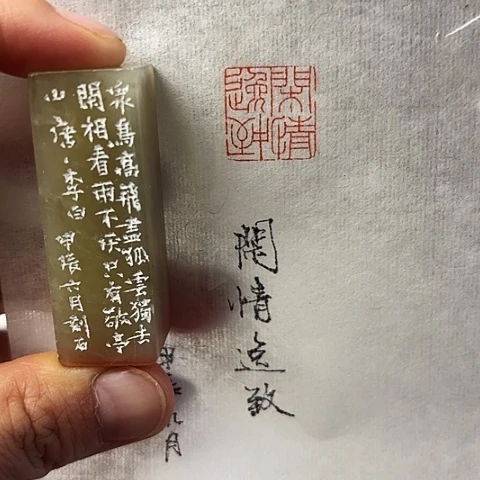 衆鳥高飛盡孤雲獨去
閑相看兩不厌只有敬亭
山 唐·李白 甲辰六月刻石
閑情逸致
閑情逸致
甲辰九月